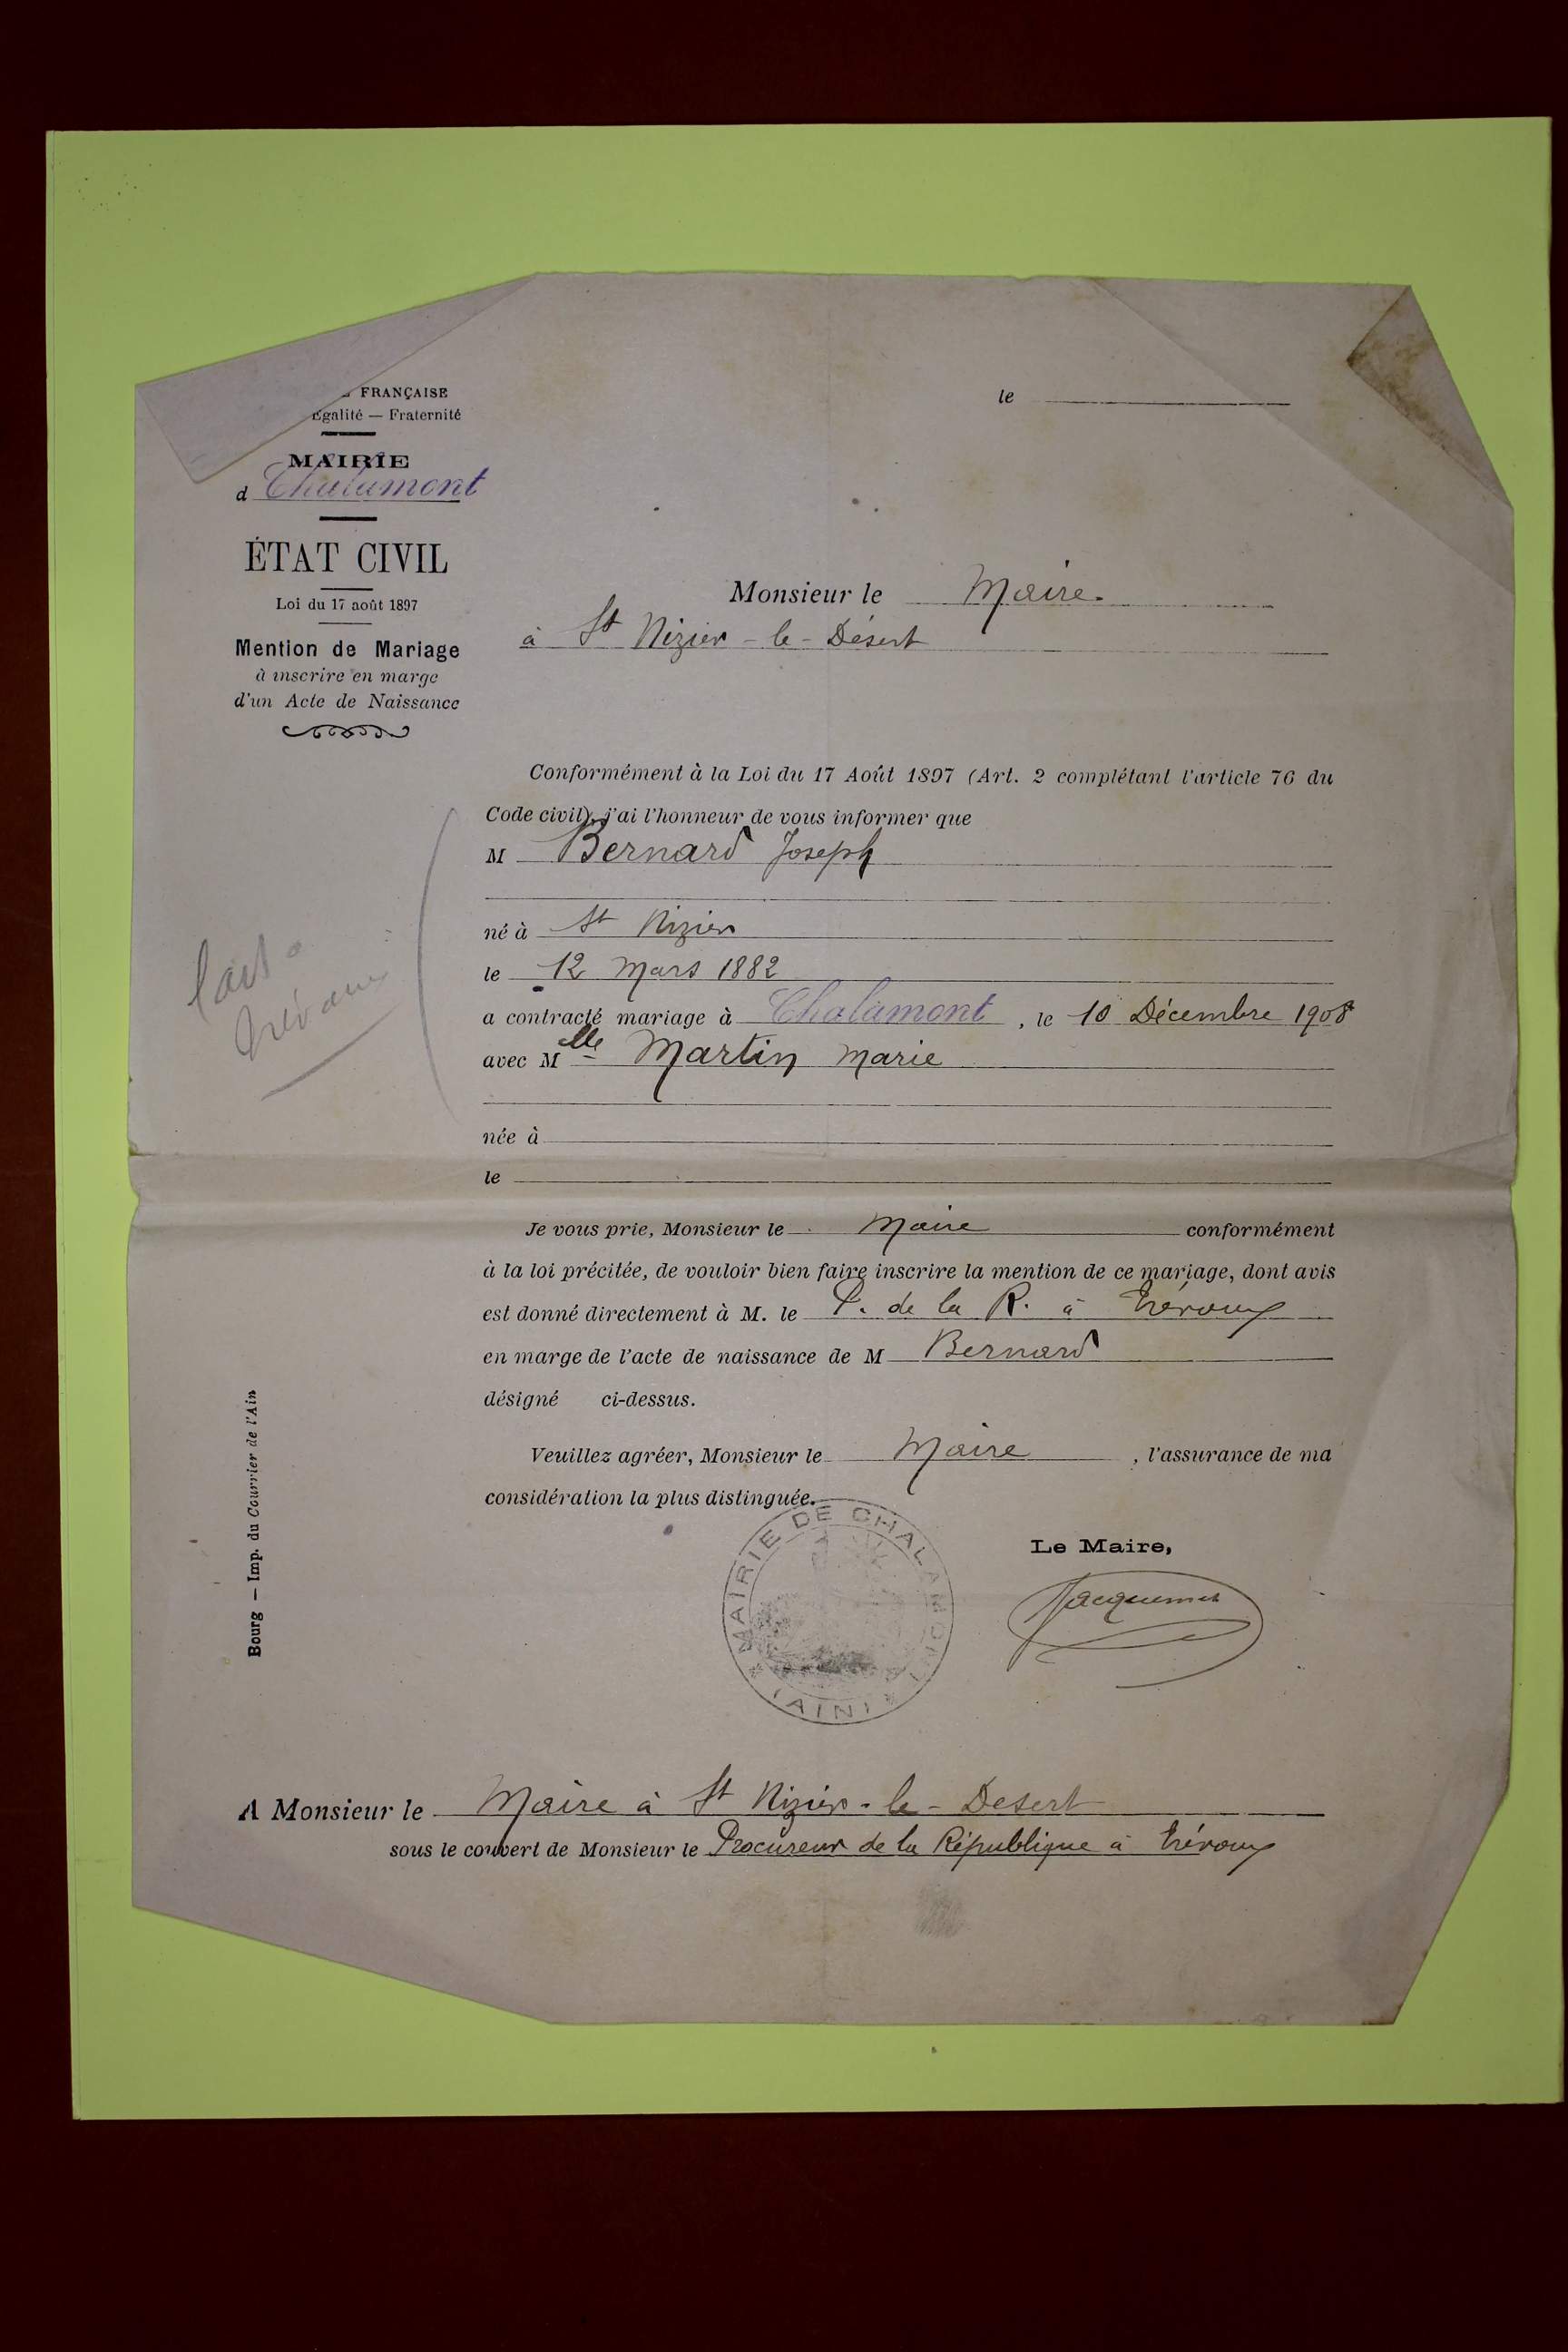 FRANÇAISE
Égalité — Fraternité
le
MAIRIE
d Chalamont
ÉTAT CIVIL
Loi du 17 août 1897
Mention de Mariage
à inscrire en marge
d'un Acte de Naissance
Monsieur le Maire.
à St Nizier-le-Désert
Conformément à la Loi du 17 Août 1897 (Art. 2 complétant l'article 76 du
Code civil), j'ai l'honneur de vous informer que
M Bernard Joseph
né à St Nizier
le 12 Mars 1882
a contracté mariage à Chalamont, le 10 Décembre 1908
avec Mlle Martin Marie
née à
le
fait à
Trévoux
Je vous prie, Monsieur le Maire conformément
à la loi précitée, de vouloir bien faire inscrire la mention de ce mariage, dont avis
est donné directement à M. le P. de la R. à Trévoux
en marge de l'acte de naissance de M Bernard
désigné ci-dessus.
Veuillez agréer, Monsieur le Maire, l'assurance de ma
considération la plus distinguée.
Le Maire,
Jacquemet
MAIRIE DE CHALAMONT
(AIN)
Bourg — Imp. du Courrier de l'Ain
A Monsieur le Maire à St Nizier-le-Desert
sous le couvert de Monsieur le Procureur de la République à Trévoux